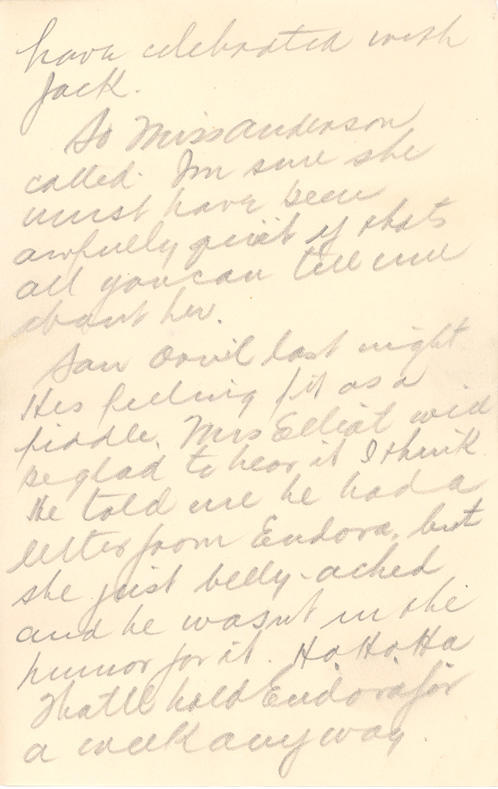 have celebrated with
Jack.
So Miss Anderson
called. Im sure she
must have been
awfully quiet if thats
all you can tell me
about her.
Saw Orvil last night
Hes feeling fit as a
fiddle. Mrs Elliot will
be glad to hear it I think
He told me he had a
letter from Eudora, but
she just belly-ached
and he wasnt in the
humor for it. Ha. Ha. Ha
Thatll hold Eudora for
a week anyway.